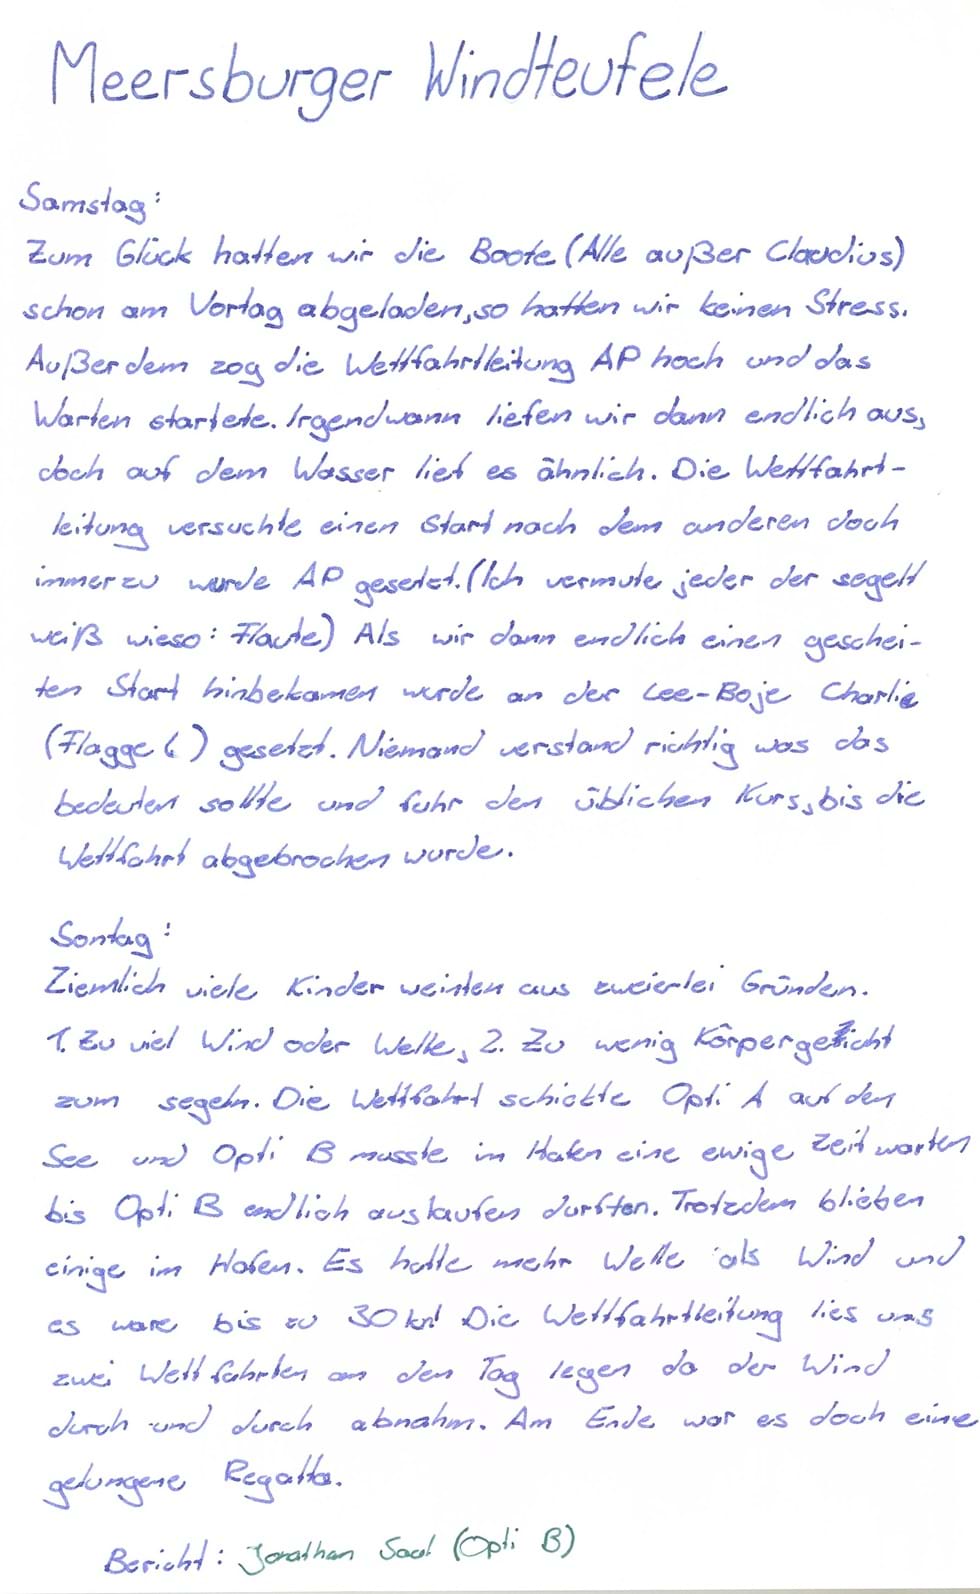 Meersburger Windteufele
Samstag:
Zum Glück hatten wir die Boote (Alle außer Claudius)
schon am Vortag abgeladen, so hatten wir keinen Stress.
Außerdem zog die Wettfahrtleitung AP hoch und das
Warten startete. Irgendwann liefen wir dann endlich aus,
doch auf dem Wasser lief es ähnlich. Die Wettfahrt-
leitung versuchte einen Start nach dem anderen doch
immerzu wurde AP gesetzt. (Ich vermute jeder der segelt
weiß wieso: Flaute) Als wir dann endlich einen geschei-
ten Start hinbekamen wurde an der Lee-Boje Charlie
(Flagge C) gesetzt. Niemand verstand richtig was das
bedeuten sollte und fuhr den üblichen Kurs, bis die
Wettfahrt abgebrochen wurde.
Sontag:
Ziemlich viele Kinder weinten aus zweierlei Gründen.
1. Zu viel Wind oder Welle, 2. Zu wenig Körpergewicht
zum segeln. Die Wettfahrt schickte Opti A auf den
See und Opti B musste im Hafen eine ewige Zeit warten
bis Opti B endlich auslaufen durften. Trotzdem blieben
einige im Hafen. Es hatte mehr Welle als Wind und
es ware bis zu 30 kn! Die Wettfahrtleitung lies uns
zwei Wettfahrten an den Tag legen da der Wind
durch und durch abnahm. Am Ende war es doch eine
gelungene Regatta.
Bericht: Jonathan (Opti B)